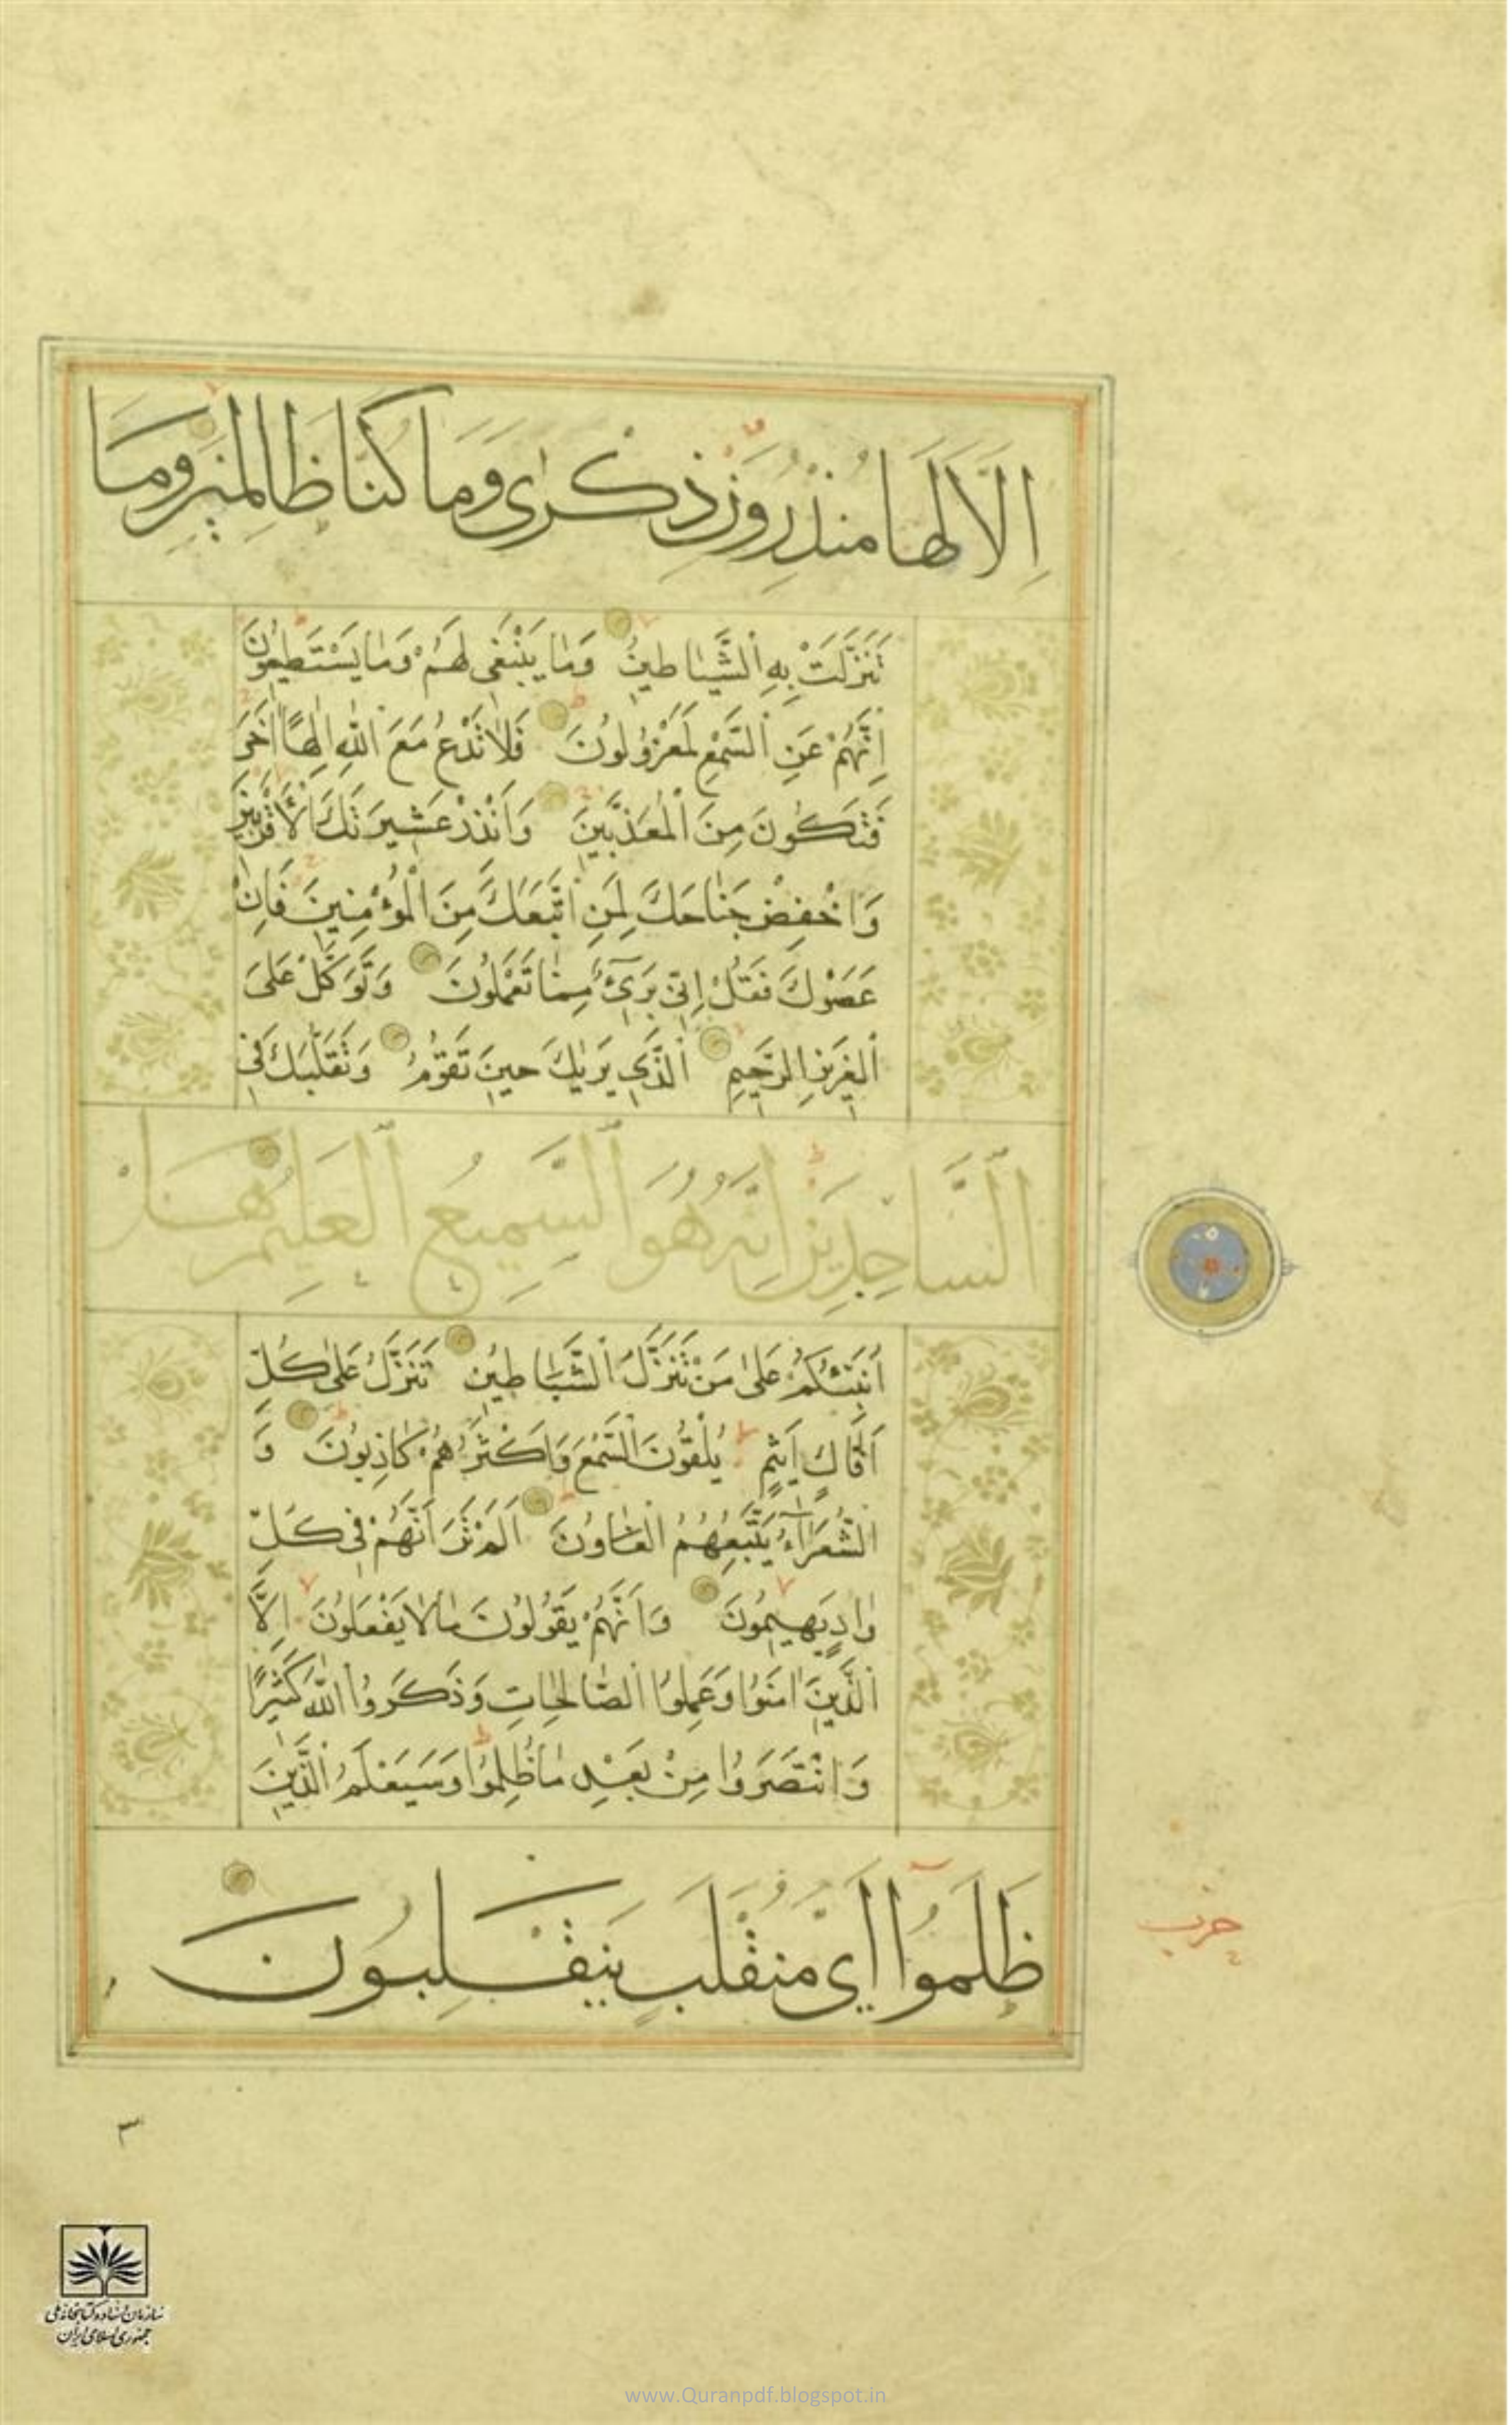 اِلَّا لَهَا مُنْذِرُونَ ذِكْرٰى وَمَا كُنَّا ظَالِمِينَ وَمَا
تَنَزَّلَتْ بِهِ الشَّيَاطِينُ وَمَا يَنْبَغِى لَهُمْ وَمَا يَسْتَطِيعُونَ
اِنَّهُمْ عَنِ السَّمْعِ لَمَعْزُولُونَ فَلَا تَدْعُ مَعَ اللّٰهِ اِلٰهًا اٰخَرَ
فَتَكُونَ مِنَ الْمُعَذَّبِينَ وَاَنْذِرْ عَشِيرَتَكَ الْاَقْرَبِينَ
وَاخْفِضْ جَنَاحَكَ لِمَنِ اتَّبَعَكَ مِنَ الْمُؤْمِنِينَ فَاِنْ
عَصَوْكَ فَقُلْ اِنِّى بَرِىٓءٌ مِمَّا تَعْمَلُونَ وَتَوَكَّلْ عَلَى
الْعَزِيزِ الرَّحِيمِ الَّذِى يَرٰيكَ حِينَ تَقُومُ وَتَقَلُّبَكَ فِى
السَّاجِدِينَ اِنَّهُ هُوَ السَّمِيعُ الْعَلِيمُ هَلْ
اُنَبِّئُكُمْ عَلٰى مَنْ تَنَزَّلُ الشَّيَاطِينُ تَنَزَّلُ عَلٰى كُلِّ
اَفَّاكٍ اَثِيمٍ يُلْقُونَ السَّمْعَ وَاَكْثَرُهُمْ كَاذِبُونَ وَ
الشُّعَرَآءُ يَتَّبِعُهُمُ الْغَاوُنَ اَلَمْ تَرَ اَنَّهُمْ فِى كُلِّ
وَادٍ يَهِيمُونَ وَاَنَّهُمْ يَقُولُونَ مَالَا يَفْعَلُونَ اِلَّا
الَّذِينَ اٰمَنُوا وَعَمِلُوا الصَّالِحَاتِ وَذَكَرُوا اللّٰهَ كَثِيرًا
وَانْتَصَرُوا مِنْ بَعْدِ مَا ظُلِمُوا وَسَيَعْلَمُ الَّذِينَ
ظَلَمُوا اَىَّ مُنْقَلَبٍ يَنْقَلِبُونَ
حزب
٣
سازمان اسناد و کتابخانه ملی
جمهوری اسلامی ایران
www.Quranpdf.blogspot.in